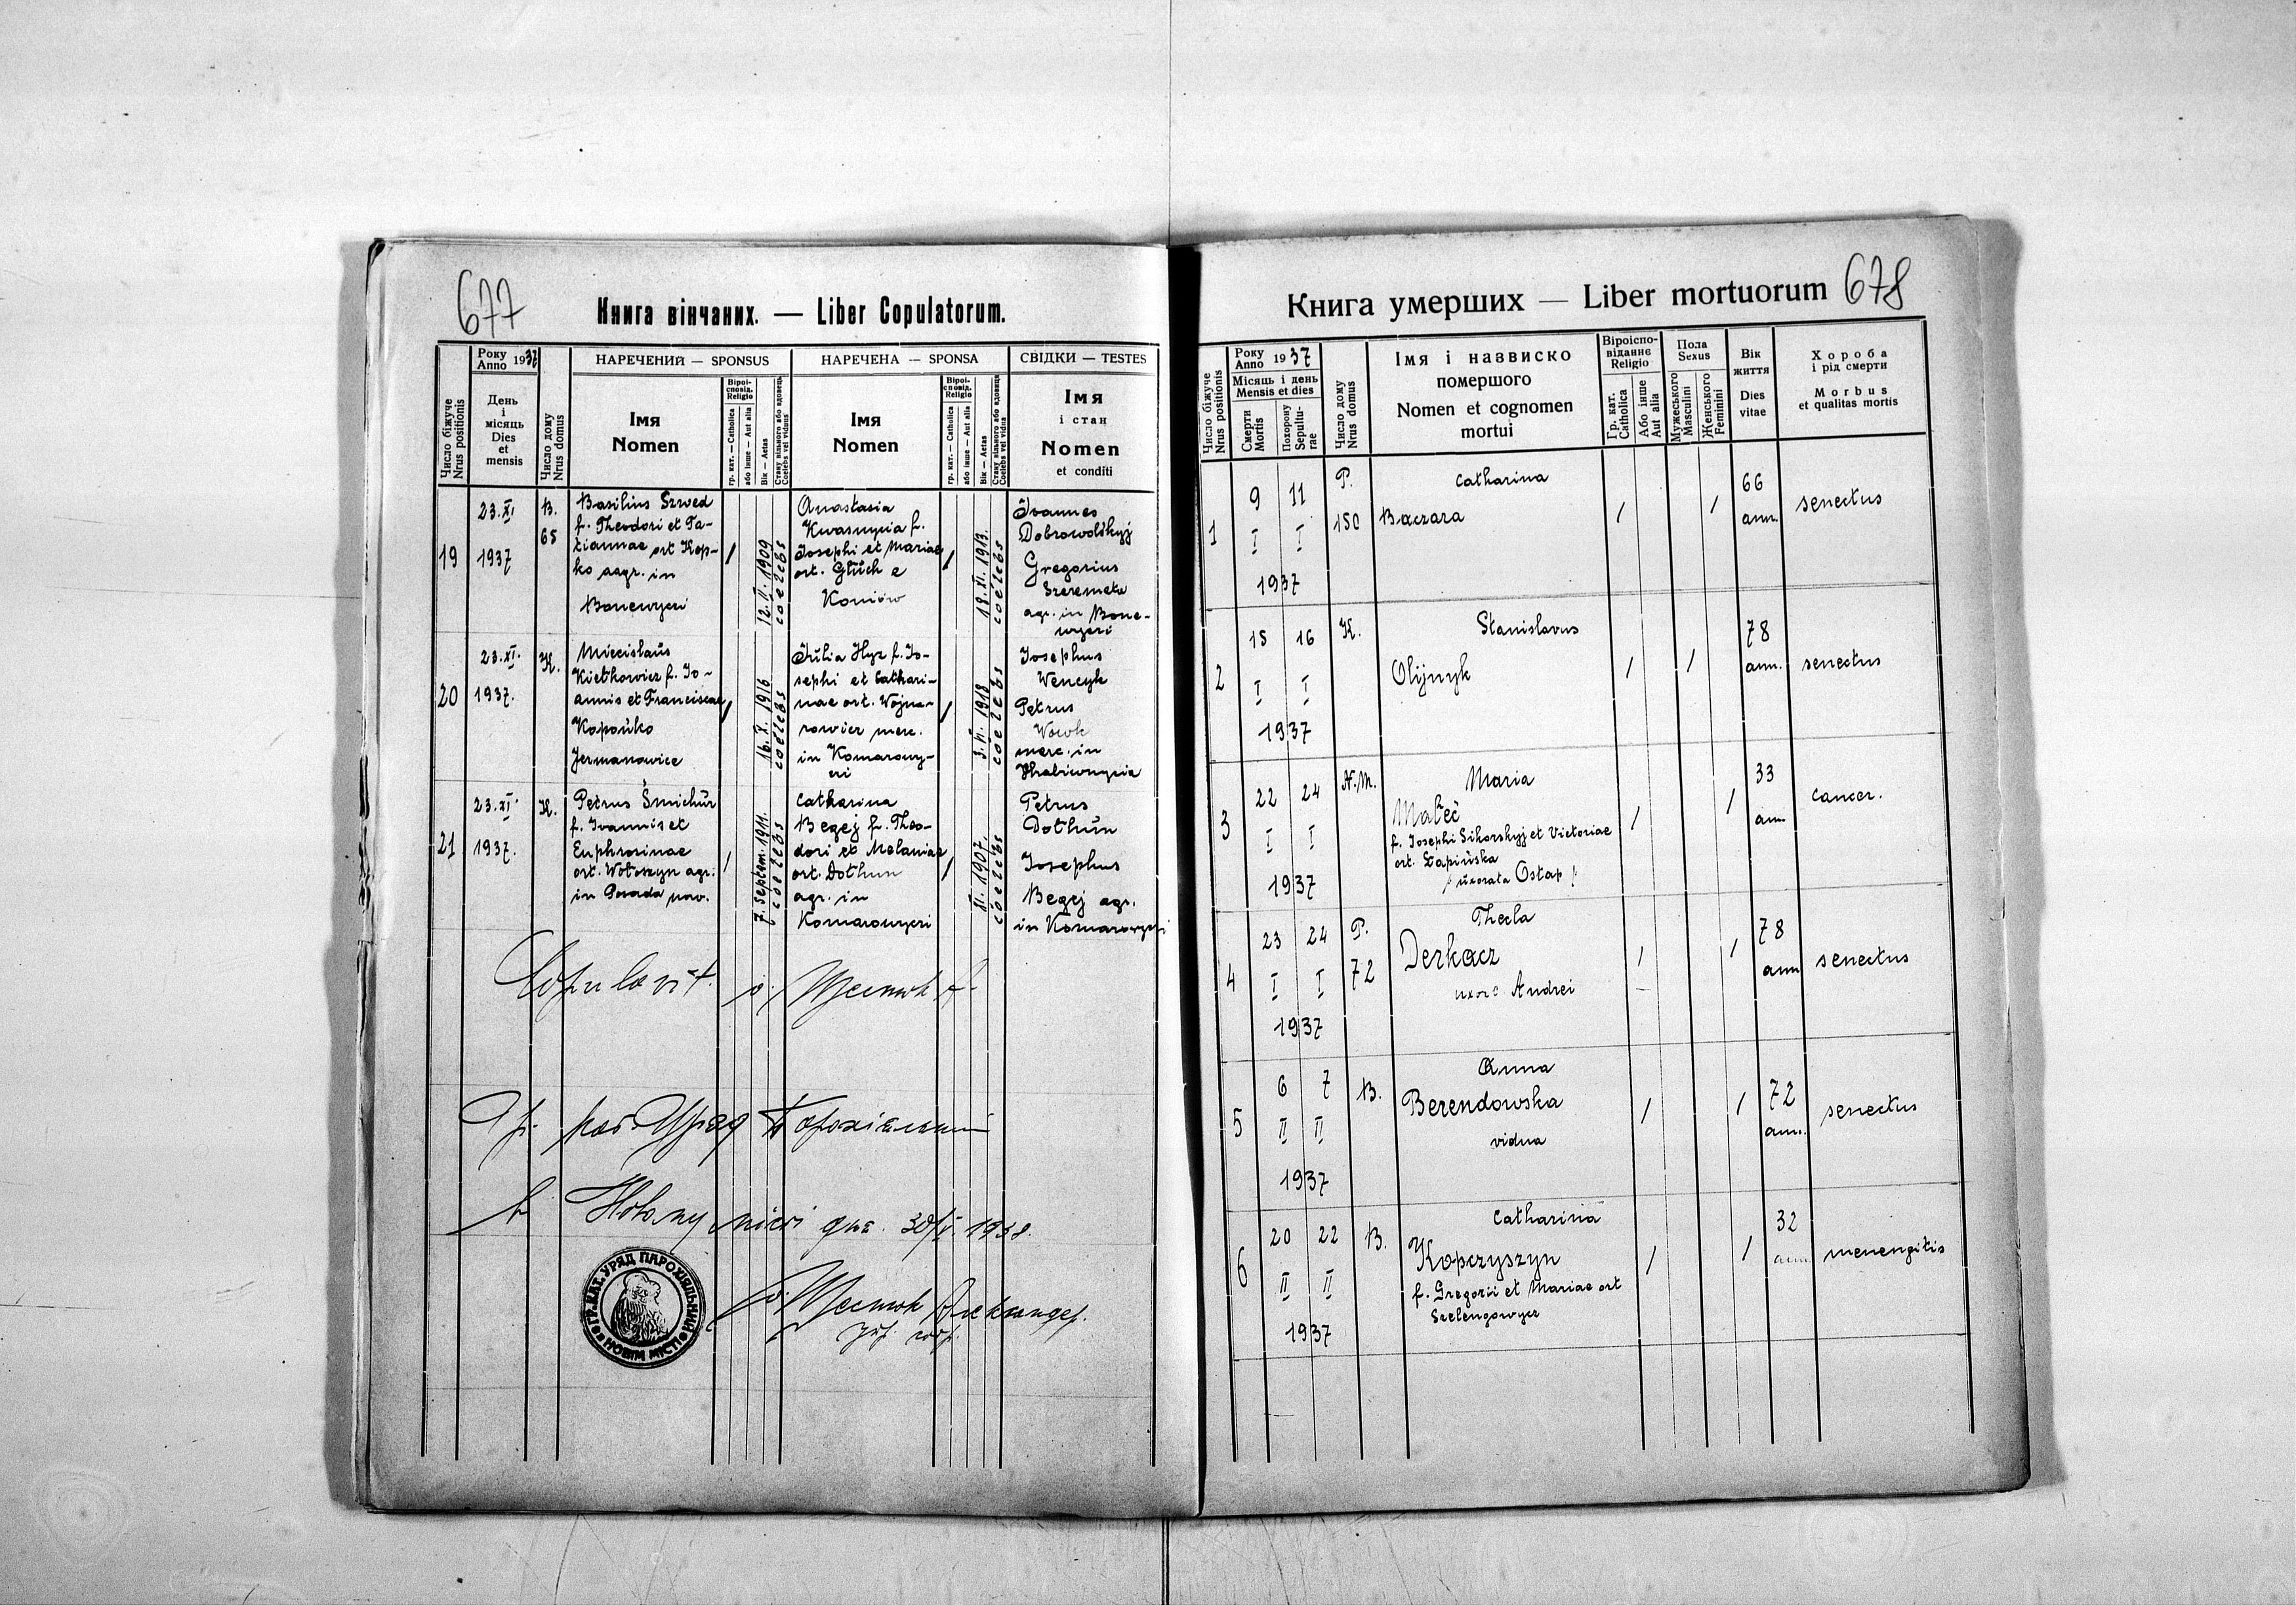 677
Книга вінчаних. — Liber Copulatorum.
Число біжуче
Nrus positionis
Року
Anno 1937
День
і
місяць
Dies
et
mensis
Число дому
Nrus domus
НАРЕЧЕНИЙ — SPONSUS
Імя
Nomen
Віроі-
сповід.
Religio
гр. кат. — Catholica
або інше — Aut alia
Вік — Aetas
Стану вільного або вдовець
Coelebs vel viduus
НАРЕЧЕНА — SPONSA
Імя
Nomen
Віроі-
сповід.
Religio
гр. кат. — Catholica
або інше — Aut alia
Вік — Aetas
Стану вільного або вдовиця
Coelebs vel vidua
СВІДКИ — TESTES
Імя
і стан
Nomen
et conditi
19
23. XI
1937
B.
65
Basilius Szwed
f. Theodori et Ta-
tiannae ort Kop-
ko aagr. in
Bonewyci
/
12. II. 1909
coelebs
Anastasia
Kwasnycia f.
Josephi et Mariae
ort. Glüch e
Koniów
/
18. XI. 1913.
coelebs
Ivannes
Dobrowolśkyj
Gregorius
Szeremeta
agr. in Bone-
wyci
20
23. XI.
1937.
K.
Miecislaus
Kietkowicz f. Jo-
annis et Franciscae
Kopońko
Jermanowice
/
16. X. 1916
coelebs
Julia Hyz f. Jo-
sephi et Cathari-
nae ort. Wojna-
rowicz merc.
in Komarowy-
ci
/
3. VI. 1918
coelebs
Josephus
Wencyk
Petrus
Wowk
merc. in
21
23. XI.
1937.
K.
Petrus Smichur
f. Ivannis et
Euphrosinae
ort. Wołoszyn agr.
in Posada now.
/
7. Septem. 1911.
coelebs
Catharina
Begej f. Theo-
dori et Melaniae
ort. Dothun
agr. in
Komarowyci
/
XI. 1907.
coelebs
Petrus
Dothun
Josephus
Begej agr.
in Komarowyci
Copulavit. о. Шестюк А.
Гр. кат. Уряд Парохіяльний
в Новому місті дня. 30/V. 1938.
ГР. КАТ. УРЯД ПАРОХІЯЛЬНИЙ
НОВІМ МІСТІ
о. Шестюк Александер.
678
Книга умерших — Liber mortuorum
Число біжуче
Nrus positionis
Року
Anno 1937
Місяць і день
Mensis et dies
Смерти
Mortis
Похорону
Sepultu-
rae
Число дому
Nrus domus
Імя і назвиско
помершого
Nomen et cognomen
mortui
Віроіспо-
віданнє
Religio
Гр. кат.
Catholica
Або інше
Aut alia
Пола
Sexus
Мужеського
Masculini
Женського
Feminini
Вік
життя
Dies
vitae
Хороба
і рід смерти
Morbus
et qualitas mortis
1
9 11
I I
1937
P.
150
Catharina
Baczara
/ /
66
ann.
senectus
2
15 16
I I
1937
K.
Stanislavus
Olijnyk
/ /
78
ann.
senectus
3
22 24
I I
1937
N.M.
Maria
Małeć
f. Josephi Sikorskyj et Victoriae
ort. Łapińska
/ uxorata Ostap /
/ /
33
ann
cancer.
4
23 24
I I
1937
P.
72
Thecla
Derkacz
uxor Andrei
/ /
78
ann
senectus
5
6 7
II II
1937
B.
Anna
Berendowska
vidua
/ /
72
ann.
senectus
6
20 22
II II
1937
B.
Catharina
Kopczyszyn
f. Gregorii et Mariae ort
/ /
32
ann
menengitis